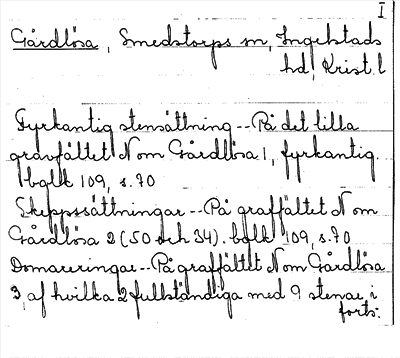 I
Gårdlösa, Smedstorps sn, Ingelstads
hd, Krist. l
Fyrkantig stensättning -- På det lilla
gravfältet N om Gårdlösa 1, fyrkantig.
bglk 109, s. 70
Skeppssättningar -- På graffältet N om
Gårdlösa 2 (50 och 34). bglk 109, s. 70
Domareringar -- På graffältet N om Gårdlösa
3, af hvilka 2 fullständiga med 9 stenar i
forts.